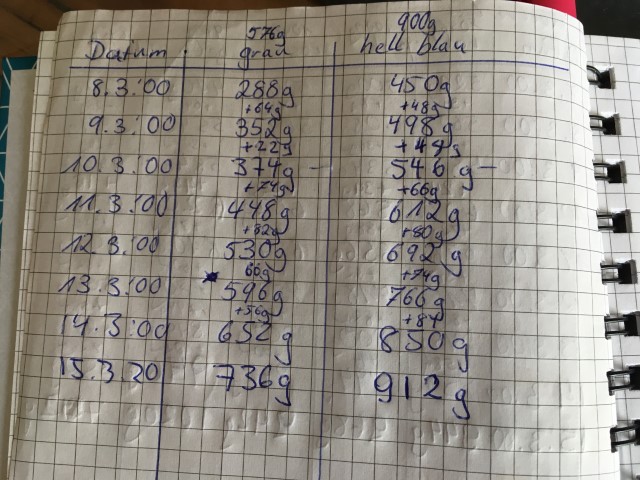 576g 900g
Datum grau hell blau
8.3.00 288g 450g
+64g +48g
9.3.00 352g 498g
+22g +48g
10.3.00 374g – 546g –
+74g +66g
11.3.00 448g 612g
+82g +80g
12.3.00 530g 692g
66g +74g
13.3.00 596g 766g
+56g +84
14.3.00 652g 850g
15.3.20 736g 912g